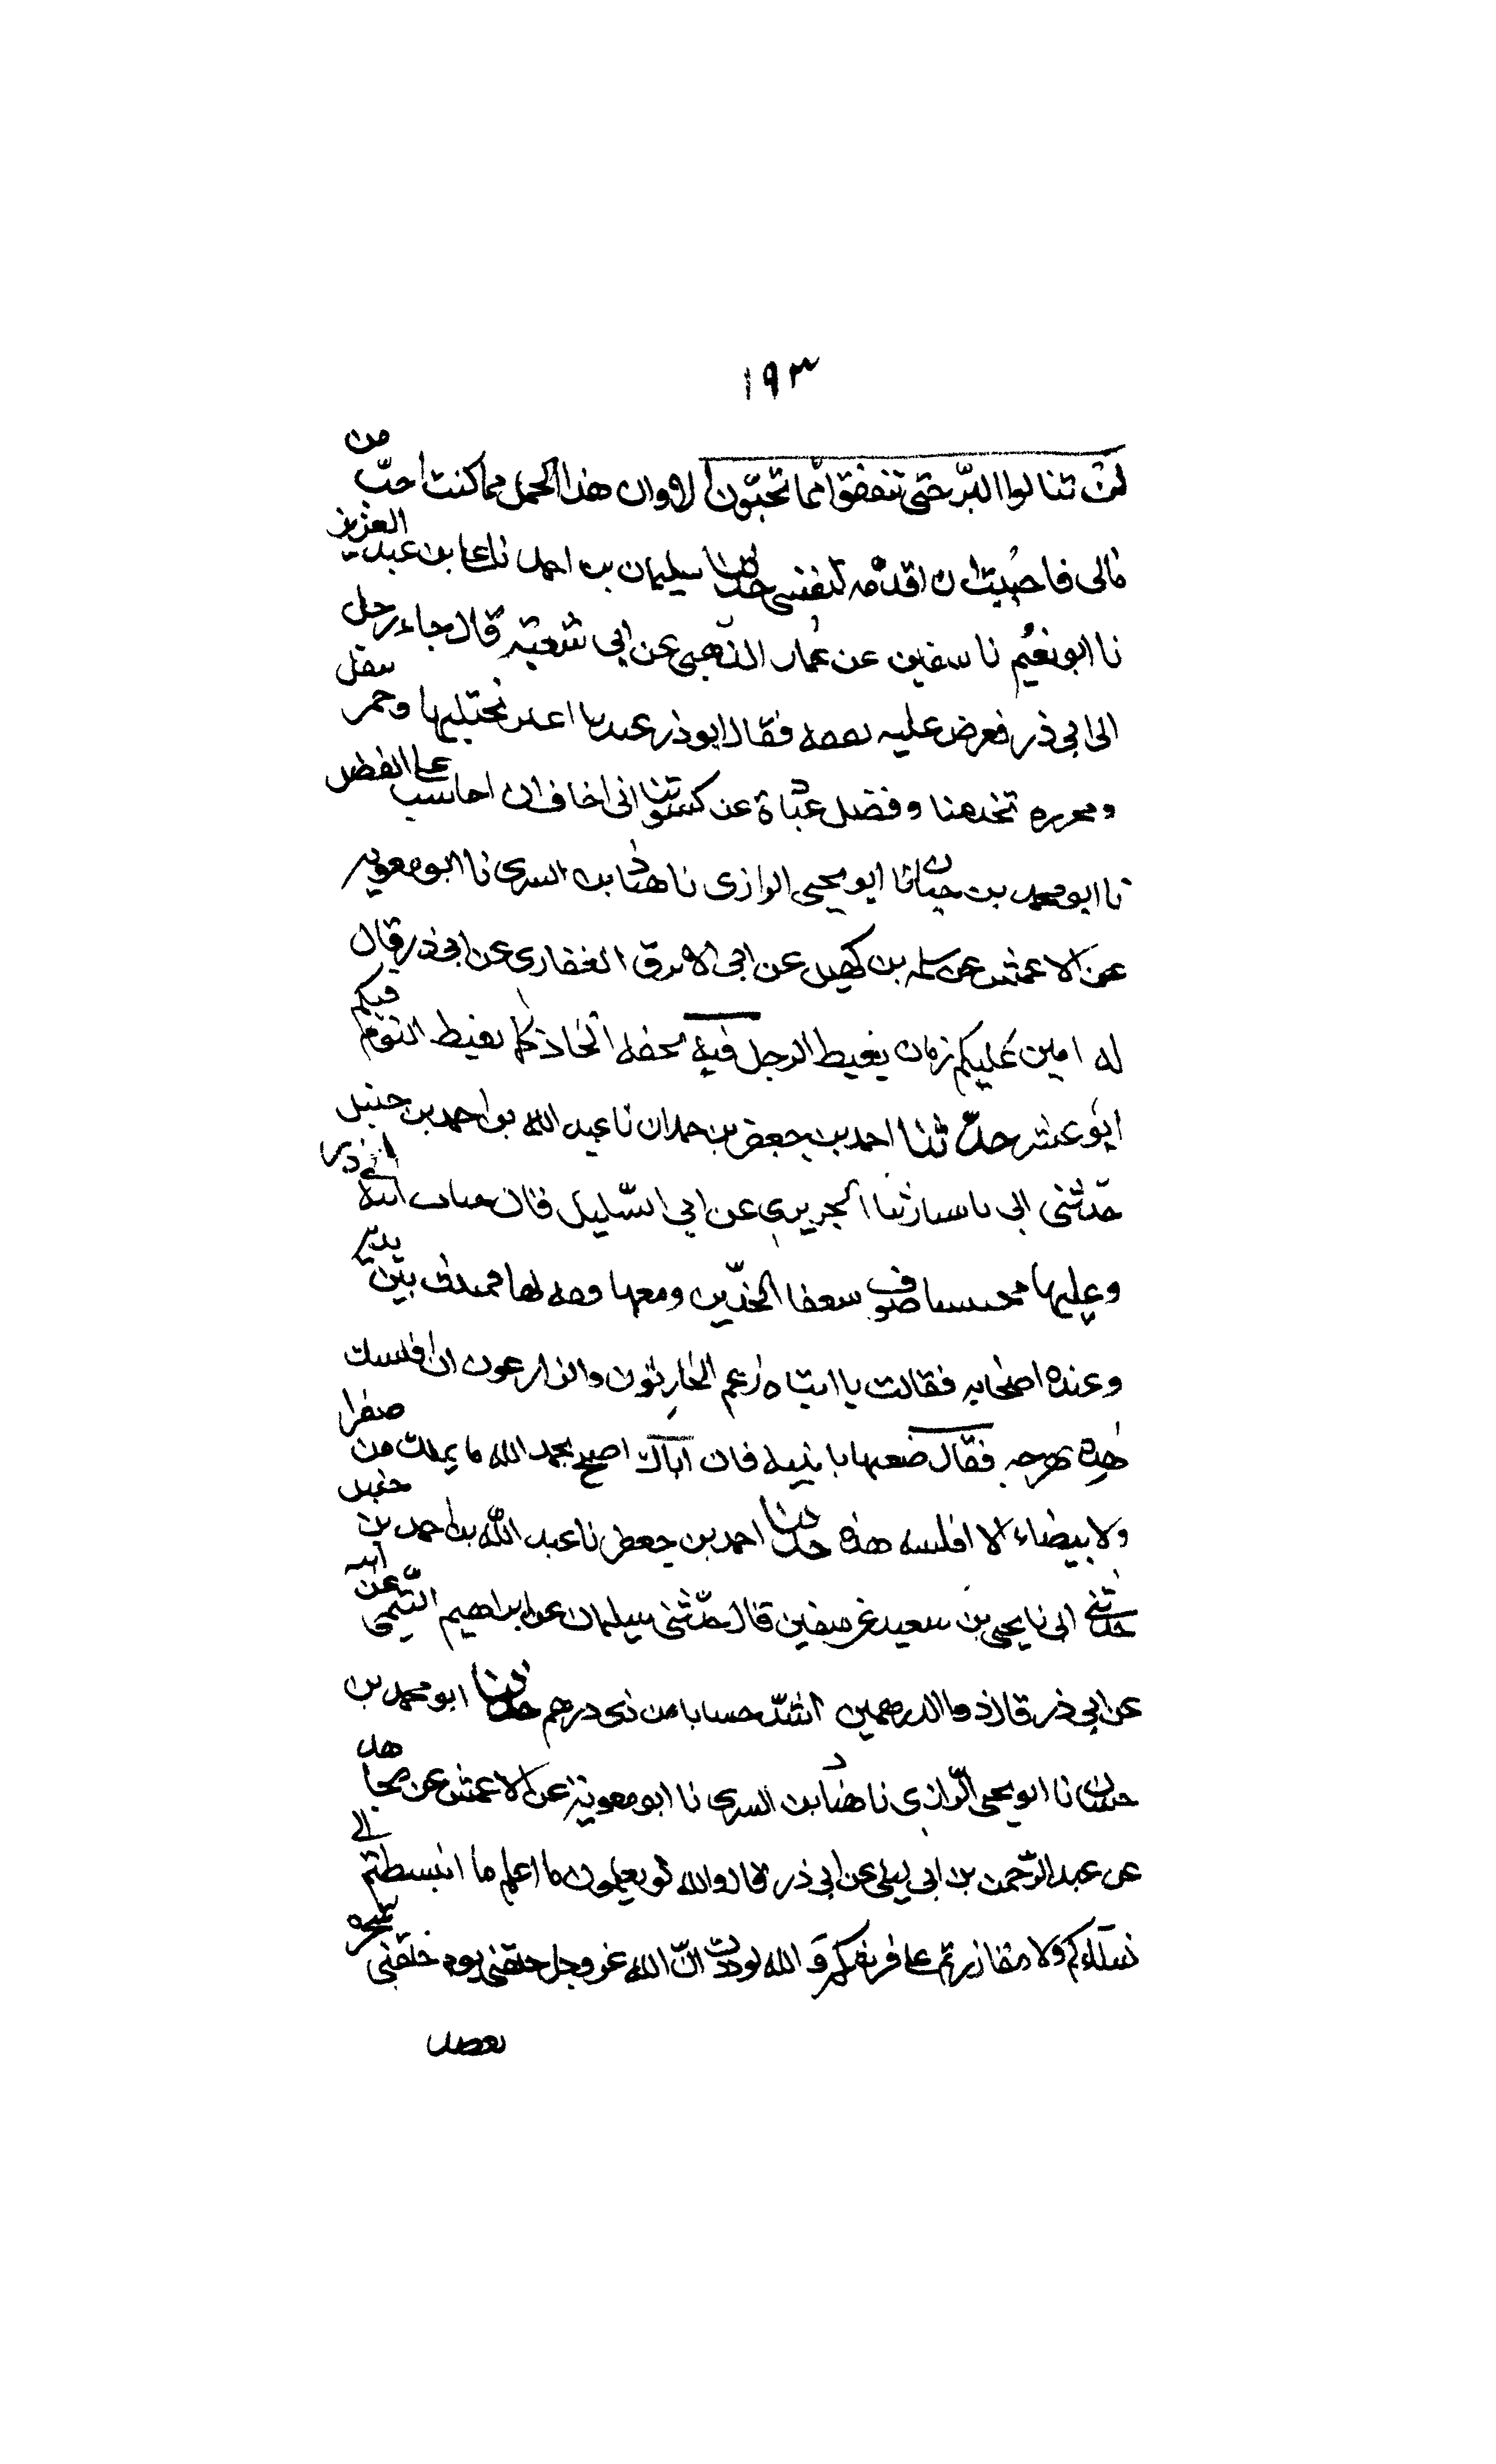 ١٩٣
لن تنالوا البرّ حتى تنفقوا مما تحبّون لا وان هذا الجمل مما كنت احبّ من
مالى فاحببت ان اقدمه لنفسى حدثنا سليمان بن احمد نا على بن عبد العزيز
نا ابو نعيم نا سفين عن عمار الذهبى عن ابي شعبة قال جاء رجل
الى ابي ذر فعرض عليه نفقه فقال ابوذر عندنا اعنز نحتلبها وحمر تنقل
ومحرره تخدمنا وفضل عباة عن كسوتنا انى اخاف ان احاسب على الفضل
نا ابو محمد بن حيان نا ابو يحيى الرازى نا هناد بن السرى نا ابو معويه
عن الاعمش عن سلمه بن كهيل عن ابى الابرق الغفارى عن ابى ذر قال
له امين عليكم زمان يغبط الرجل فيه بخفه الحاذ كما يغبط القوم فيكم
ابو عشر حدّثنا احمد بن جعفر بن حمدان نا عبد الله بن احمد بن حنبل
حدّثنى ابى نا سيار ثنا الجريري عن ابي السّليل قال جاءت ابنة ابى ذر
وعليها صوف سعفا الخدّين ومعها قفه لها فمثلت بين يديه
وعنده اصحابه فقالت يا ابتاه زعم الحارثون والزارعون ان افلسك
هذه بهرجه فقال ضعيها يا بنيه فان اباك اصبح بحمد الله ما يملك من صفرا
ولا بيضاء الا افلسه هذه حدثنا احمد بن جعفر نا عبد الله بن احمد بن حنبل
حدثنى ابى نا يحيى بن سعيد عن سفين قال حدّثنى سليمان عن ابراهيم التّيمى عن ابيه
عن ابي ذر قال ذو الدرهمين اشدّ حسابا من ذى درهم حدثنا ابو محمد بن
حيان نا ابو يحيى الرّازى نا هناد بن السرى نا ابو معوية عن الاعمش عن مجاهد
عن عبد الرّحمن بن ابى ليلى عن ابي ذر قال والله لو تعلمون ما اعلم ما انبسطتم الى
نسآءكم ولا تقاررتم على فرشكم والله لوددت انّ الله عز وجل خلقنى يوم خلقنى شجره
تعضد